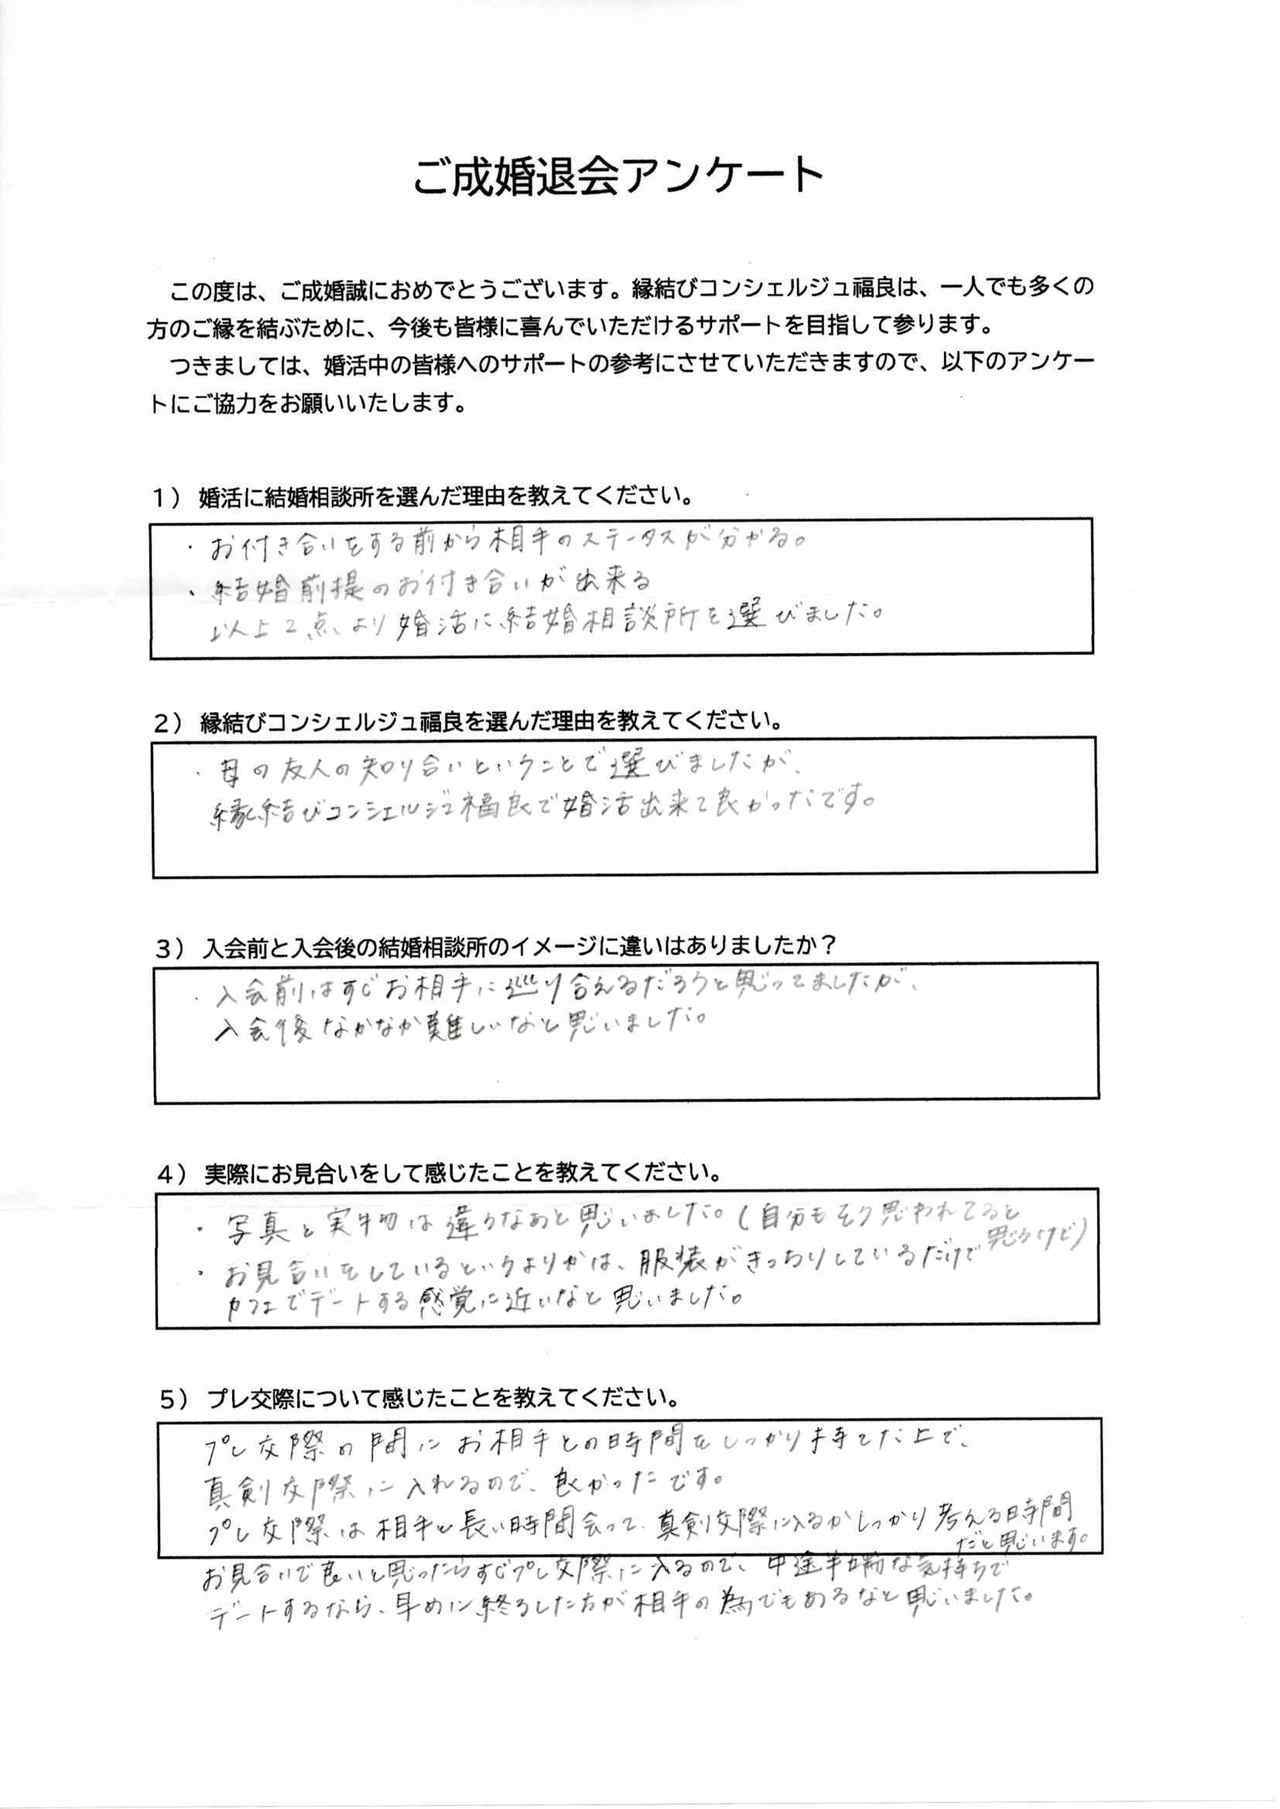 ご成婚退会アンケート
この度は、ご成婚誠におめでとうございます。縁結びコンシェルジュ福良は、一人でも多くの
方のご縁を結ぶために、今後も皆様に喜んでいただけるサポートを目指して参ります。
つきましては、婚活中の皆様へのサポートの参考にさせていただきますので、以下のアンケー
トにご協力をお願いいたします。
1）婚活に結婚相談所を選んだ理由を教えてください。
・お付き合いをする前から相手のステータスが分かる。
・結婚前提のお付き合いが出来る
以上2点より婚活に結婚相談所を選びました。
2）縁結びコンシェルジュ福良を選んだ理由を教えてください。
・母の友人の知り合いということで選びましたが、
縁結びコンシェルジュ福良で婚活出来て良かったです。
3）入会前と入会後の結婚相談所のイメージに違いはありましたか？
・入会前はすぐお相手に巡り合えるだろうと思ってましたが、
入会後なかなか難しいなと思いました。
4）実際にお見合いをして感じたことを教えてください。
・写真と実物は違うなあと思いました。（自分もそう思われてると
思うけど）
・お見合いをしているというよりかは、服装がきっちりしているだけで
カフェでデートする感覚に近いなと思いました。
5）プレ交際について感じたことを教えてください。
プレ交際の間にお相手との時間をしっかり持てた上で、
真剣交際に入れるので、良かったです。
プレ交際は相手と長い時間会って、真剣交際に入るかしっかり考える時間
だと思います。
お見合いで良いと思ったらすぐプレ交際に入るので、中途半端な気持ちで
デートするなら、早めに終了した方が相手の為でもあるなと思いました。